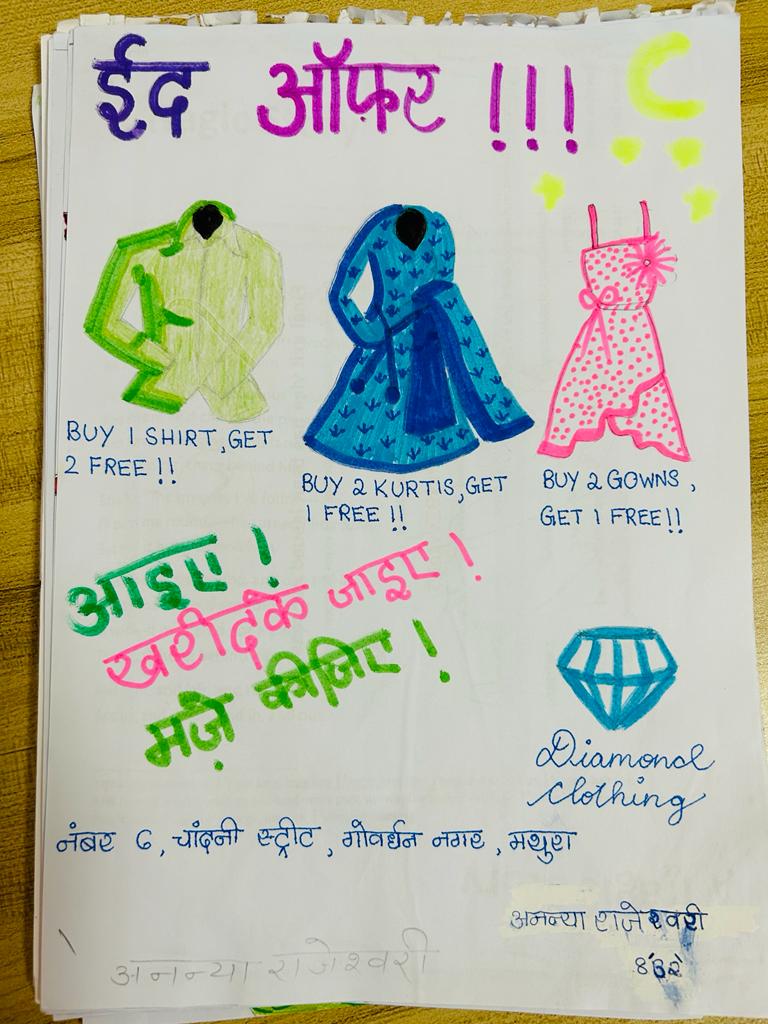 ईद ऑफ़र !!!
BUY 1 SHIRT, GET
2 FREE !!
BUY 2 KURTIS, GET
1 FREE !!
BUY 2 GOWNS,
GET 1 FREE!!
आइए !
खरीदके जाइए !
मज़े कीजिए !
Diamond
Clothing
नंबर 6, चांदनी स्ट्रीट, गोवर्धन नगर, मथुरा
अनन्या राजेश्वरी
अनन्या राजेश्वरी